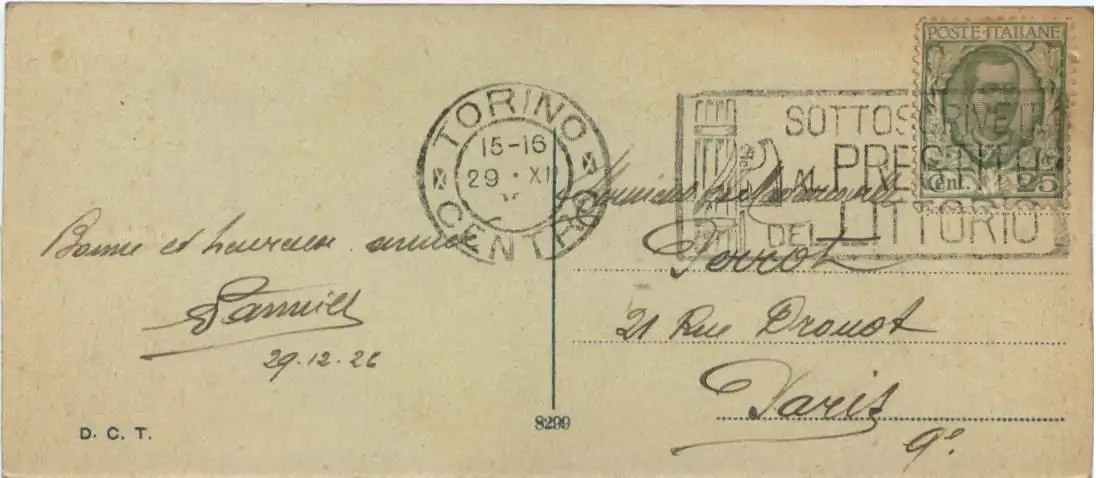 POSTE·ITALIANE
Cent. 25
TORINO
CENTRO
15-16
29 · XII
SOTTOSCRIVETE
AL PRESTITO
DEL LITTORIO
Bonne et heureuse année
29-12-26
Monsieur et Madame
Perrot
21 Rue Drouot
Paris
9e
D. C. T.
8299